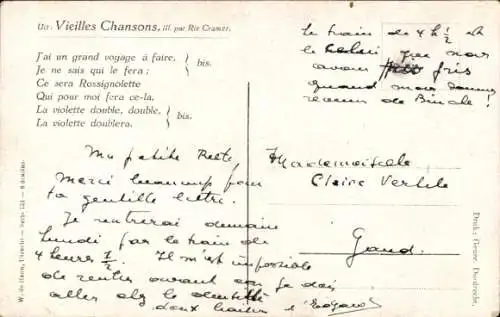 Uit: Vieilles Chansons, ill. par Rie Cramer.
J'ai un grand voyage à faire,
Je ne sais qui le fera;
bis.
Ce sera Rossignolette
Qui pour moi fera ce-la.
La violette double, double,
La violette doublera.
bis.
Ma petite
Merci beaucoup pour
ta gentille lettre.
Je rentrerai demain
lundi par le train de
4 heures 1/2. Il m'est impossible
de rentrer avant car je dois
aller chez le dentiste
deux
le train de 4 h 1/2 est
le que nous
avons pris
quand nous sommes
revenu de Binche!
Mademoiselle
Claire
Gand.
W. de Haan, Utrecht
Druk: Gebr.